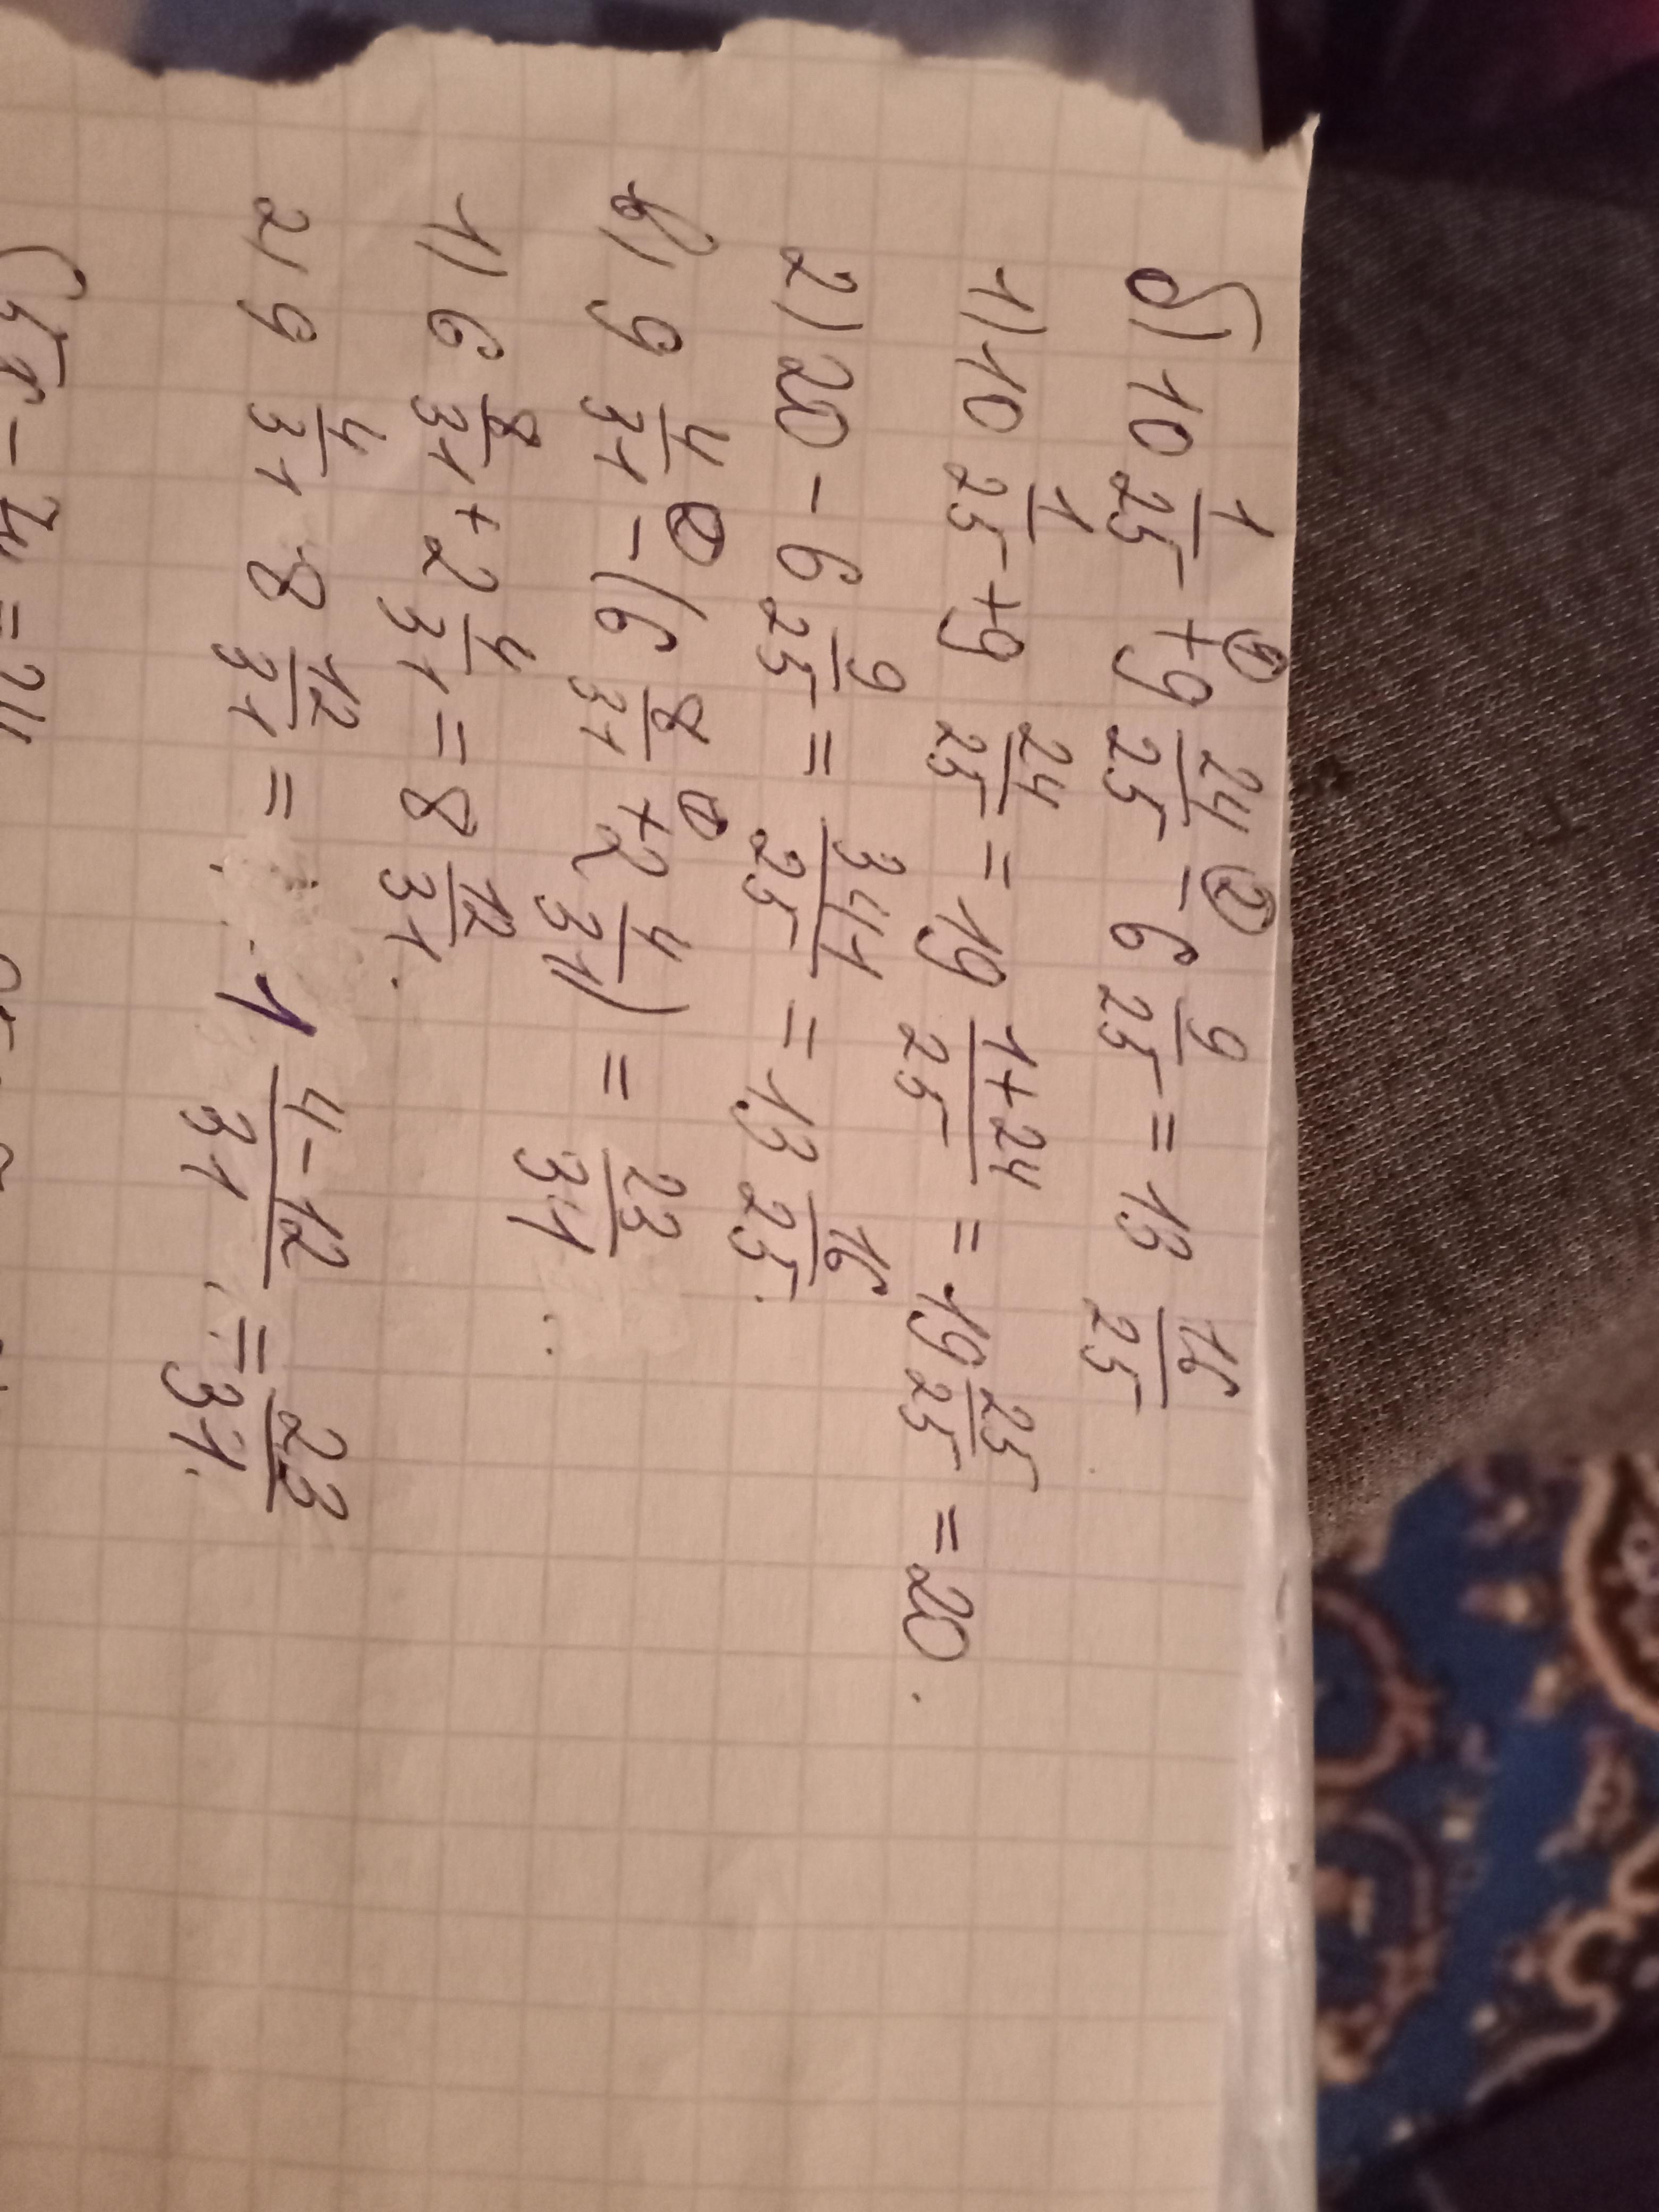 б) 10 1/25 + 9 24/25 - 6 9/25 = 13 16/25
1) 10 1/25 + 9 24/25 = 19 1+24/25 = 19 25/25 = 20.
2) 20 - 6 9/25 = 341/25 = 13 16/25.
в) 9 4/31 - (6 8/31 + 2 4/31) = 23/31
1) 6 8/31 + 2 4/31 = 8 12/31.
2) 9 4/31 8 12/31 = 1 4-12/31 = 23/31.